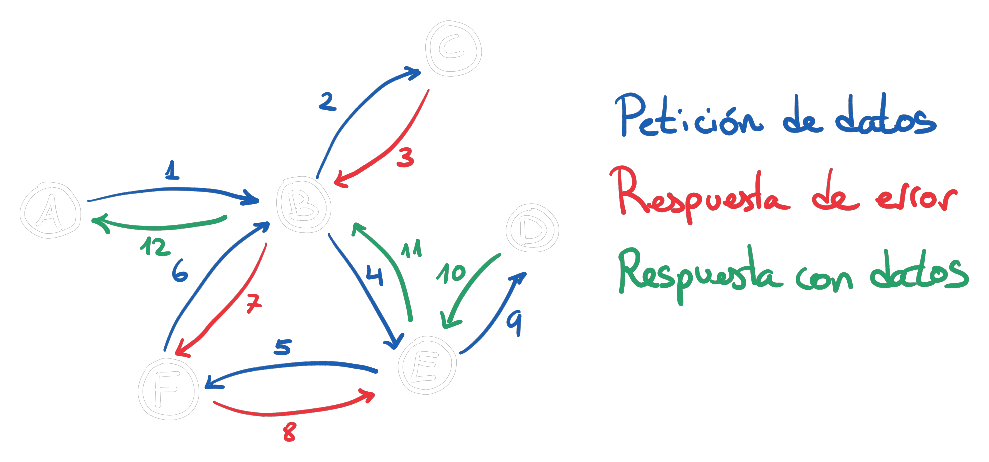 C
2
3
1
A
B
12
6
7
4
11
10
D
9
5
F
E
8
Petición de datos
Respuesta de error
Respuesta con datos